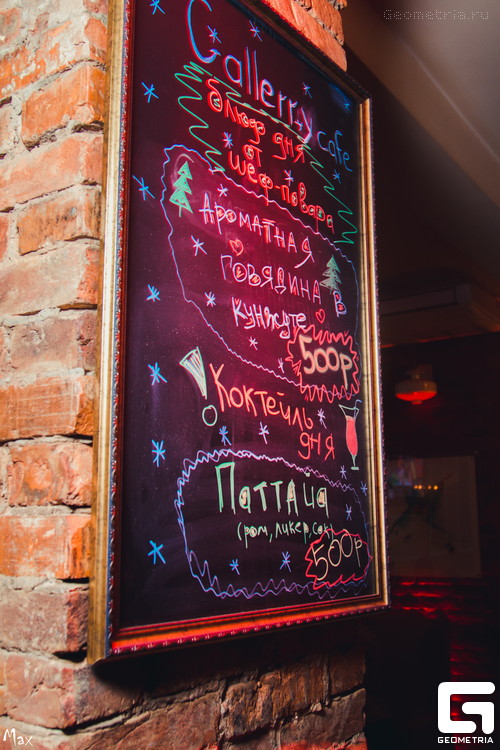 Geometria.ru
Gallerry cafe
блюдо дня
от
шеф-повара
Ароматная
говядина в
кунжуте
500р
Коктейль
дня
Паттайа
(ром, ликер, сок)
500р
Max
GEOMETRIA